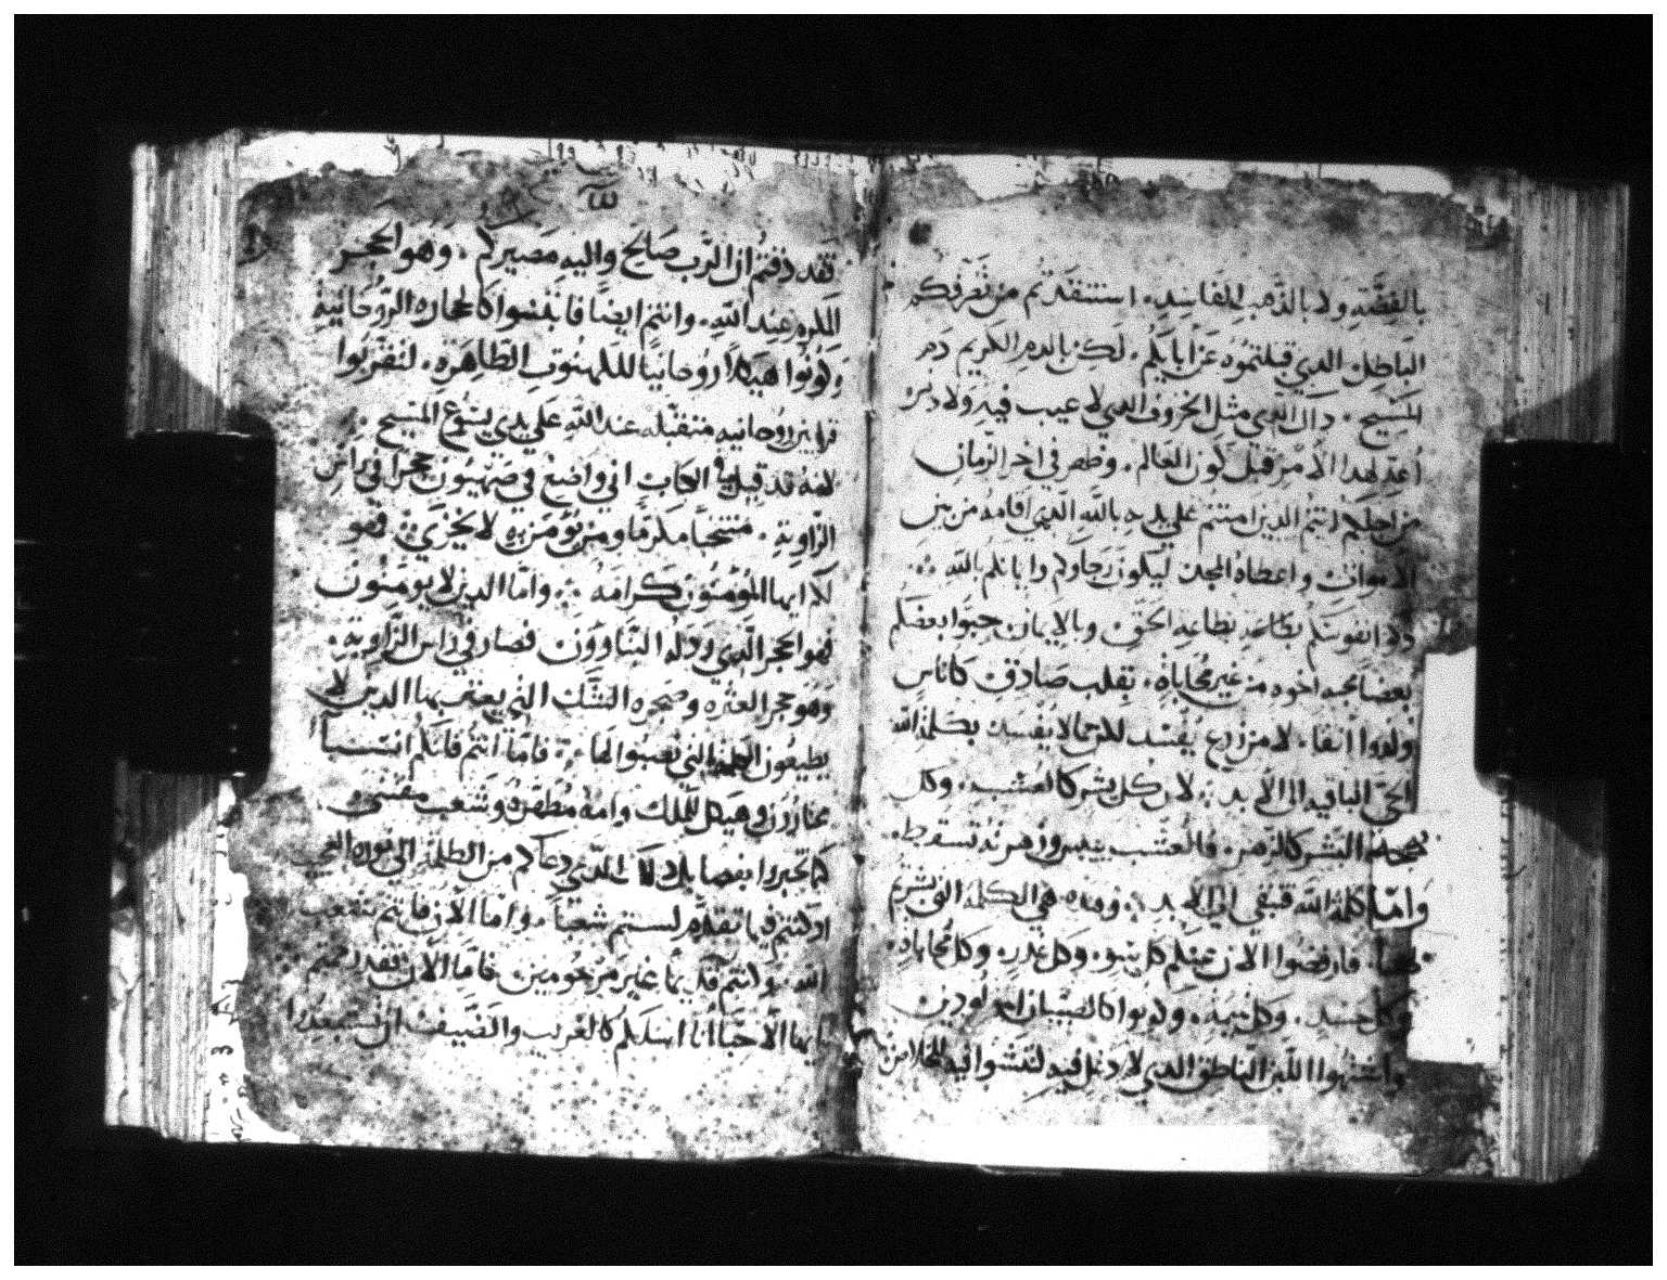 بالفضَّةِ ولا بالذَّهبِ الفاسِدِ. استنقدتم من تصرفكم
الباطِل الدي قبلتموُه عَن أبايكُم. لَكِن بالدمِ الكريم دم
المَسيح. داك الدى مثل الخروف الدي لا عيب فيهِ ولا دنس
أعدّ لهدا الأمر قبل كون العَالم. وظهر في اخر الزمانِ
من اجلكم انتمُ الدين امنتم على يديه بالله الدي اقامهُ من بين
الاموات واعطاهُ المجد ليكون رجاوكم وايمانكم بالله
انفوسَكم بطاعة الحق وبالايمان حبوا بعضكم
بعضا محبه اخوه من غير محُاباة. بقلب صَادق كاناس
ولدوا انفا. لا من زرع يفسد لكن مما لا يفسد بكلمة الله
الحيّ الباقيه الى الأبد لان كل بشر كالعشب. وكل
البشر كالزهر. فالعشب ييبس وزهرته تسقط.
وامَّا كلمة الله فتبقي الي الابد وهده هي الكلمة التي بشرتم
بها. فارفضوا الان عنكم كل سو. وكل غدر. وكل محاباه.
وكل حسد. وكل نميمة. وكونوا كالصبيان المولودين
واشتهوا اللبن الناطق الدي لا دغل فيه لتنشوا فيه للخلاص
فقد دقتمُ ان الرَّب صَالح واليهِ مَصيركم. وَهوَ الحجر
المكرم عند الله. وانتم ايضاً فابنوا كالحجاره الروُحَانية
وكونوا هيكلا روُحانياً للكهنوتِ الطَاهِرَهِ. لتقربُوا
قرابين روُحانيه متقبّله عند اللهِ على يدي يسُوع المسيح
لانهُ قد قيل في الكتاب اني واضعُ في صَهيُون حجرًا في راسِ
الزّاويةِ. منتخبًا مكرمًا ومن يؤمن بهِ لا يخزي. فهو
لكم ايها المؤمنُون كرامه واما الدين لا يومنون
فهو الحجر الدي ردله البناوون فصار في راس الزاويه.
وَهوَ حجر العثره وصخره الشَّك التي يعثر بها الدين لا
يطيعون الكلمة التي نصبوا لها فامّا انتم فانكم انتسَاباً
مختارون وهيكل للملك وامة مُطهَره وشعب مقتنى
كما تخبروا بفضايل داك الدي دعاكم من الظلمة الى نوره العجيب
اد كنتم فيما تقدم لستم شعباً. واما الان فانتم شعب
الله. وكنتم قديما غير مرحومين. فاما الان فقد رحمتم
ايها الاحبا انا اسلكم كالغريب والضيف ان تبتعدوا